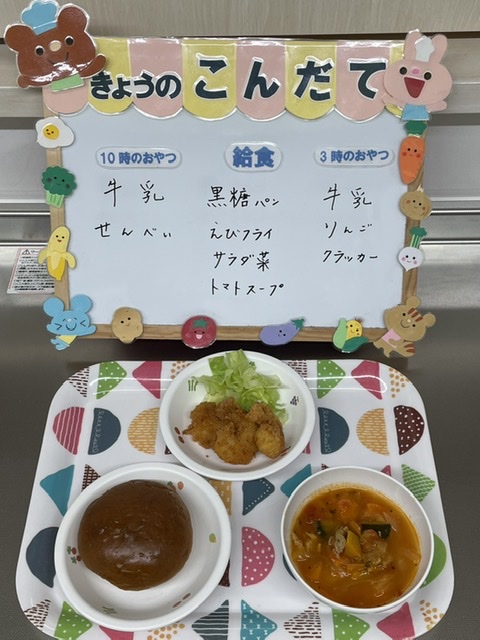 きょうの こんだて
10時のおやつ
牛乳
せんべい
給食
黒糖パン
えびフライ
サラダ菜
トマトスープ
3時のおやつ
牛乳
りんご
クラッカー